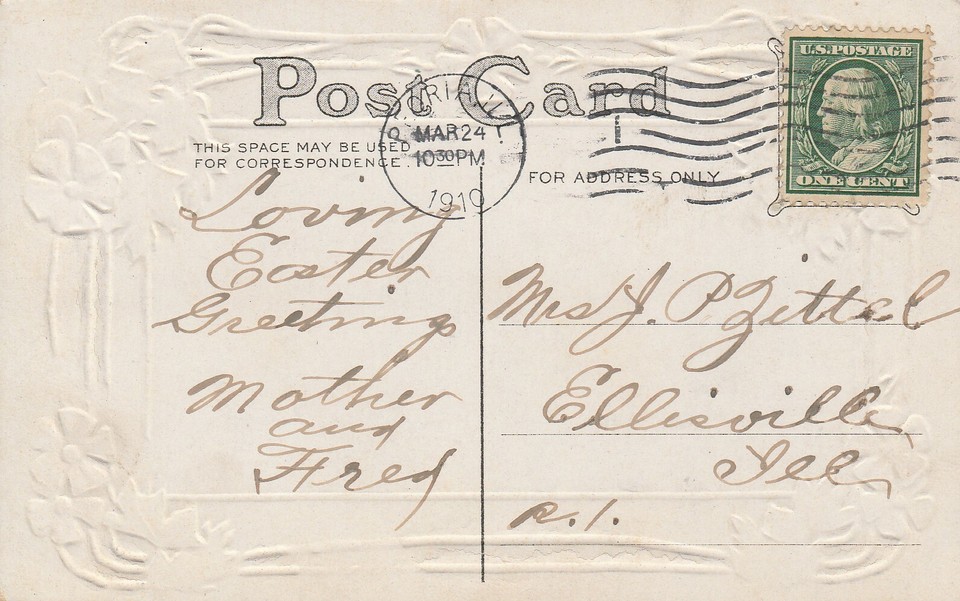 Post Card
U.S. POSTAGE
ONE CENT
MAR 24
10 30 PM
1910
THIS SPACE MAY BE USED
FOR CORRESPONDENCE
FOR ADDRESS ONLY
Loving
Easter
Greetings
Mother
and
Fred
Mrs J. P Zittel
Ellisville
Ill
R. 1.